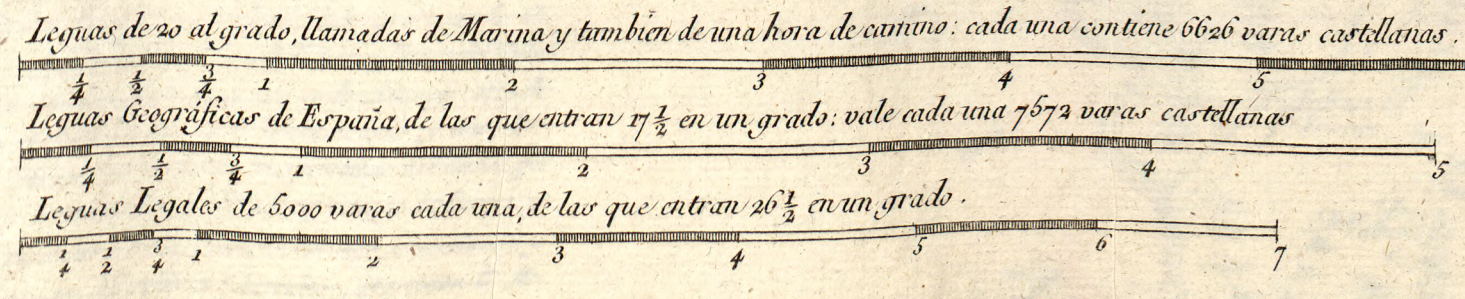 Leguas de 20 al grado, llamadas de Marina y tambien de una hora de camino: cada una contiene 6626 varas castellanas.
1/4 1/2 3/4 1 2 3 4 5
Leguas Geográficas de España, de las que entran 17 1/2 en un grado: vale cada una 7572 varas castellanas
1/4 1/2 3/4 1 2 3 4 5
Leguas Legales de 5000 varas cada una, de las que entran 26 1/2 en un grado.
1/4 1/2 3/4 1 2 3 4 5 6 7